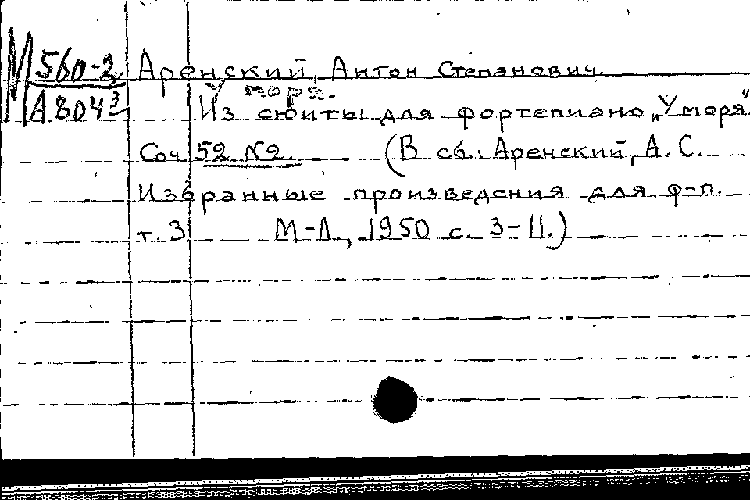 М 560-2 Аренский, Антон Степанович.
А 804³ У моря.
Из сюиты для фортепиано „У моря“
Соч 52 № 2. (В сб.: Аренский, А. С.
Избранные произведения для ф-п.
т. 3 М-Л, 1950 с. 3-11.)